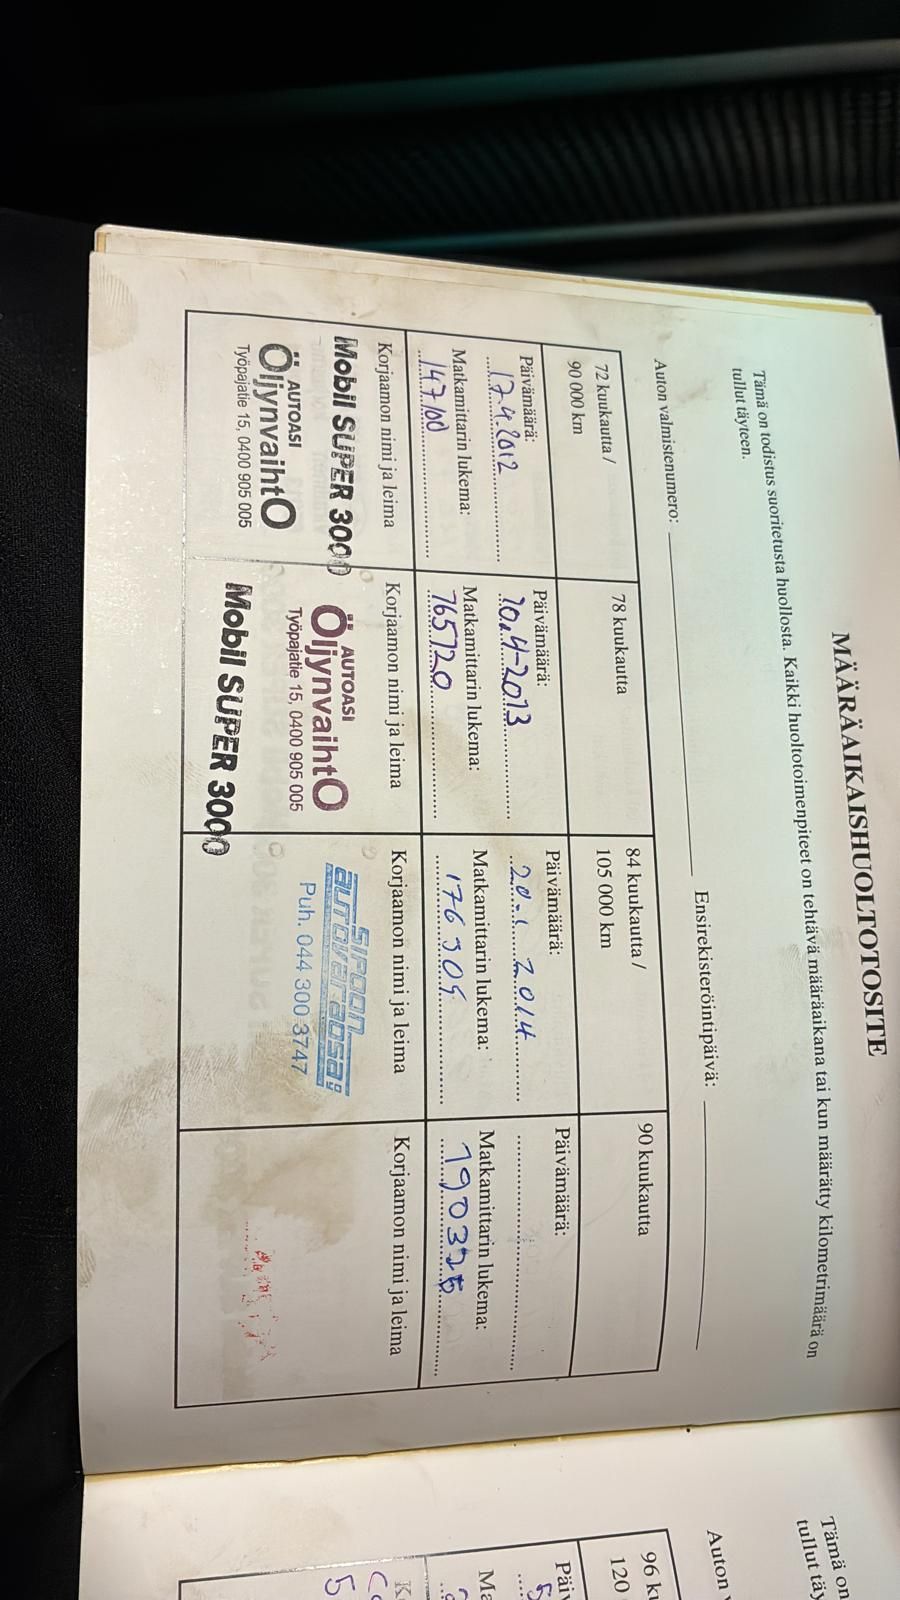 MÄÄRÄAIKAISHUOLTOTOSITE
Tämä on todistus suoritetusta huollosta. Kaikki huoltotoimenpiteet on tehtävä määräaikana tai kun määrätty kilometrimäärä on
tullut täyteen.
Auton valmistenumero:
Ensirekisteröintipäivä:
72 kuukautta /
90 000 km
Päivämäärä:
17.4.2012
Matkamittarin lukema:
147100
Korjaamon nimi ja leima
Mobil SUPER 3000
AUTOASI
ÖljynvaihtO
Työpajatie 15, 0400 905 005
78 kuukautta
Päivämäärä:
Matkamittarin lukema:
165120
Korjaamon nimi ja leima
AUTOASI
ÖljynvaihtO
Työpajatie 15, 0400 905 005
Mobil SUPER 3000
84 kuukautta /
105 000 km
Päivämäärä:
20.1 2014
Matkamittarin lukema:
Korjaamon nimi ja leima
sipoon
autovaraosa
Puh. 044 300 3747
90 kuukautta
Päivämäärä:
Matkamittarin lukema:
Korjaamon nimi ja leima
Tämä on
tullut täy
Auton
96 ku
120
Päiv
Ma